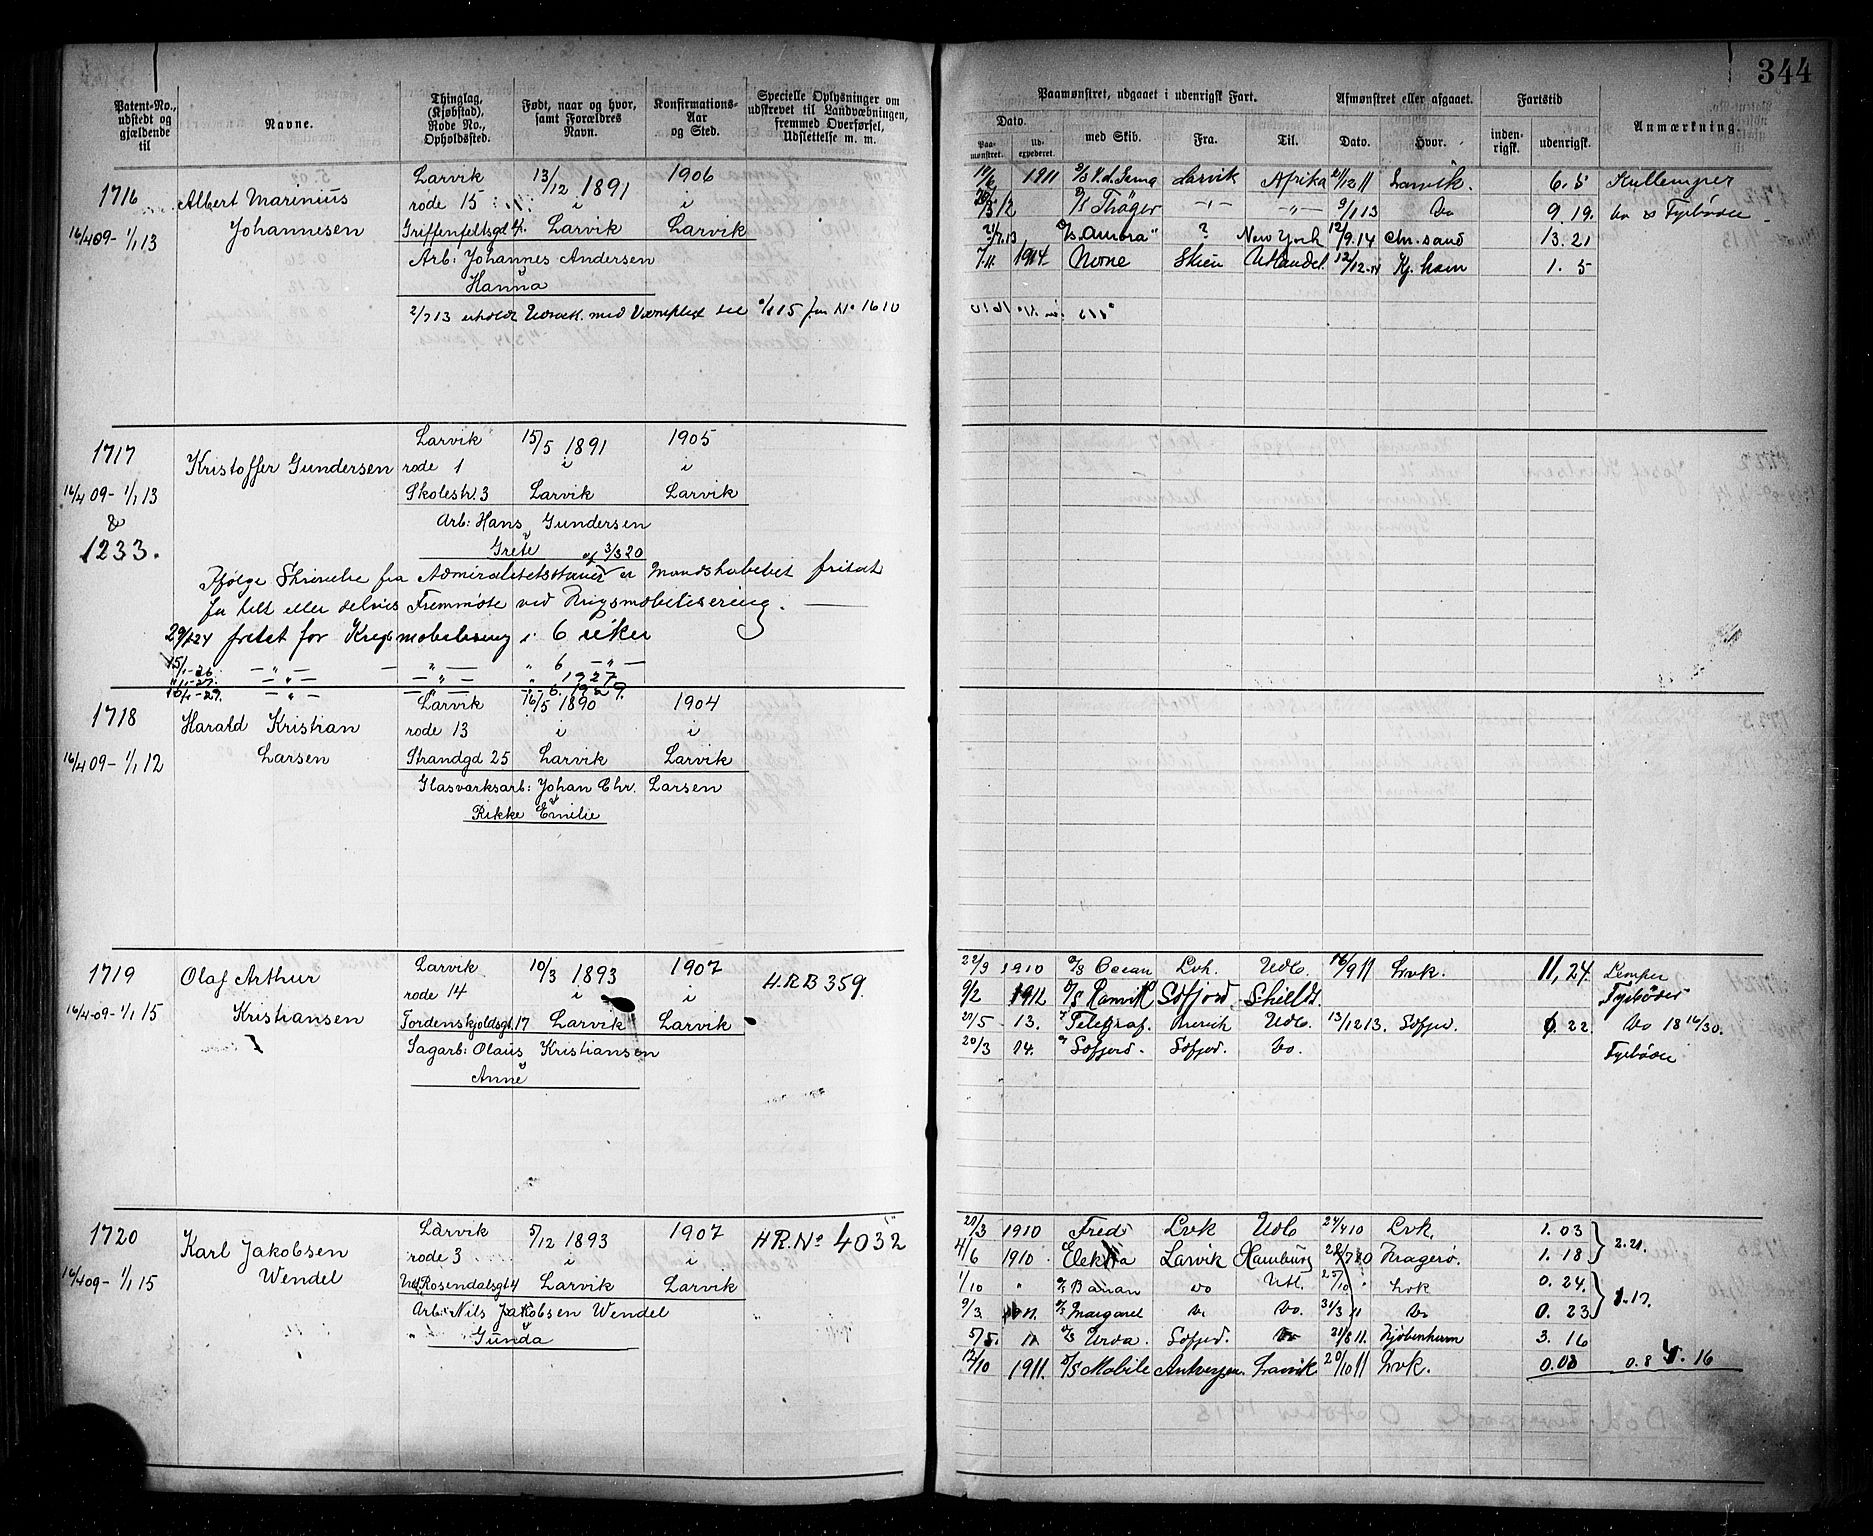 344
Patent-No., udstedt og gjældende til
Navne.
Thinglag, (Kjøbstad), Rode No., Opholdssted.
Født, naar og hvor, samt Forældres Navn.
Konfirmations-Aar og Sted.
Specielle Oplysninger om udskrevet til Landvæbningen, fremmed Overførsel, Udslettelse m. m.
Paamønstret, udgaaet i udenrigsk Fart.
Afmønstret eller afgaaet.
Fartstid
Anmærkning.
Dato.
Paa-mønstret.
Ud-expederet.
med Skib.
Fra.
Til.
Dato.
Hvor.
inden-rigsk.
udenrigsk.
1716 Albert Marinius Larvik 13/12 1891 1906
rode 15 i i
16/4 09 - 1/1 13 Johannesen Griffenfeltsgd 4. Larvik Larvik
Arb: Johannes Andersen
Hanna
2/7 13 erholdt Udsæt. med Værnepligt til 1/1 15 No 1610
1911 Larvik Afrika Larvik. 6. 5 Kullemper
Thöger -"- -"- 9/1 13 do 9. 19. do & Fyrbøder
21/7.13 Aurora" ? New York 12/9.14 Chr.sand 13. 21
7.11. 1914 Norne Skien Kj.havn 1. 5
1717 Kristoffer Gundersen Larvik 15/5 1891 1905
rode 1 i i
16/4 09 - 1/1 13 Skolestr. 3 Larvik Larvik
& Arb: Hans Gundersen
1233. Grete af 3/3 20
Ifølge Skrivelse fra Admiralstaben er Mandskabet fritat
for helt eller delvis Fremmøte ved Krigsmobilisering.
29/1 24 fritat for Krigsmobilisering i 6 uker
15/1-26 -"- -"- " 6 -"-
-27. -"- -"- 1927
-29. -"- -"- 6. 1929.
1718 Harald Kristian Larvik 16/5 1890 1904
rode 13 i i
16/4 09 - 1/1 12 Larsen Strandgd 25 Larvik Larvik
Glasværksarb: Johan Chr. Larsen
Rikke Emilie
1719 Olaf Arthur Larvik 10/3 1893 1907 H.R.B 359.
rode 14 i i
16/4-09 - 1/1 15 Kristiansen Tordenskjoldsgt. 17 Larvik Larvik
Sagarb: Olaus Kristiansen
Anne
22/9 1910 Ocean Lvk. Udl. 16/9 11 Lvk. 11, 24. Lemper
9/2 1912 Ranvik Sdfjord Shields. Fyrbøder
13. Telegraf. Udl. 13/12 13. Sdfjor. 22. do 18 16/30.
20/3 14. Sdfjord. Sdfjord. do. Fyrbøder
1720 Karl Jakobsen Larvik 5/12 1893 1907 HR.No 4032
rode 3 i i
16/4 09 - 1/1 15 Wendel Rosendalsgt 4 Larvik Larvik
Arb: Nils Jakobsen Wendel
Gunda
20/3 1910 Fred Lvk Udl 24/4 10 Lvk. 1. 03
4/6 1910 Elektra Larvik Hamburg Kragerø. 1. 18 2.21.
1/10 " Banan do Utl. 25/10 " Lvk 0. 24.
9/3 Margaret do. do. 31/3 11 do 0. 23 1.17.
5/5. 11 Urda. Sdfjord. do 21/8 11. Kjøbenhavn 3. 16
12/10 1911. D/S Mobile Antverpen. Larvik 20/10 11 Lvk. 0.08 0.8 16